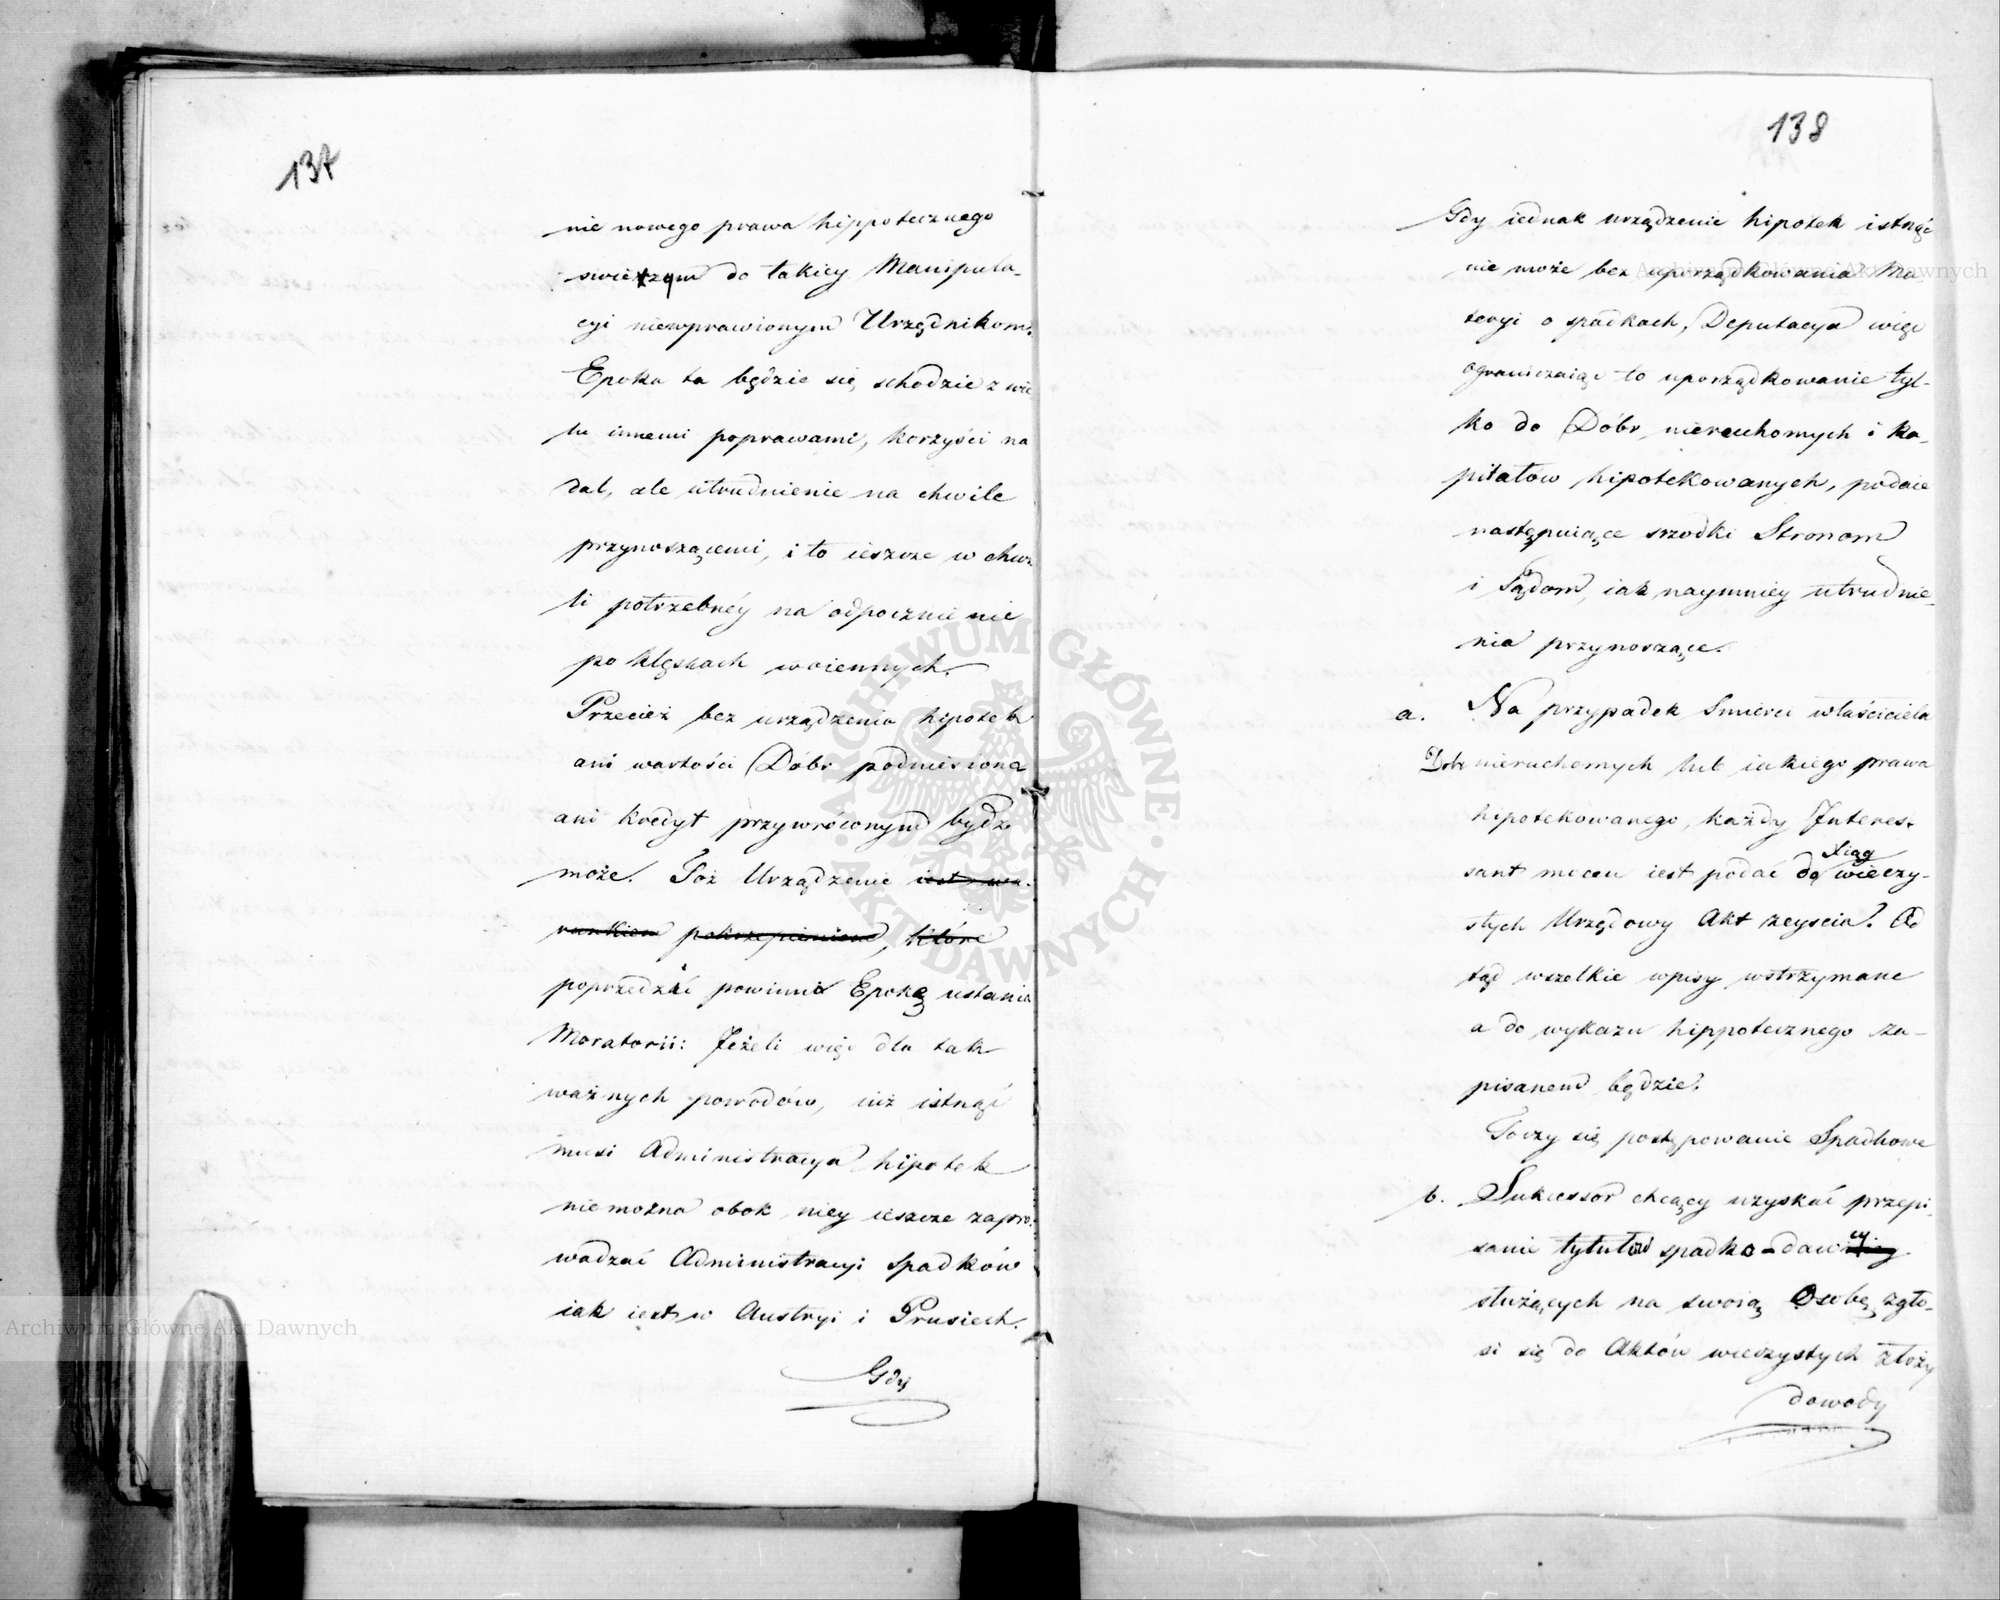 137
nie nowego prawa hippotecznego
swieżym do takiey Manipula-
cyi niewprawionym Urzędnikom.
Epoka ta będzie się schodzić z wie
lu innemi poprawami, korzyści na
dal, ale utrudnienie na chwile
przynoszącemi, i to ieszcze w chwi-
li potrzebnéy na odpocznienie
po klęskach woiennych.
Przecież bez urządzenia hipotek
ani wartości Dóbr podniesiona
ani kredyt przywróconym bydź
może. Toż Urządzenie iest wa-
runkiem pokrzepienia, które
poprzedzić powinno Epokę ustania
Moratorii: Jeżeli więc dla tak
ważnych powodów, iuż istnąć
musi Administracya hipotek
niemożna obok niey ieszcze zapro-
wadzać Administracyi Spadków
iak iest w Austryi i Prusiech.
Gdy
138
Gdy iednak urządzenie hipotek istnąć
nie może bez uporządkowania Ma
teryi o spadkach, Deputacya więc
ograniczaiąc to uporządkowanie tyl-
ko do Dóbr nieruchomych i ka-
pitałów hipotekowanych, podaie
następuiące srzodki Stronom
i Sądom, iak naymniey utrudnie-
nia przynoszące.
a. Na przypadek Smierci właściciela
Dóbr nieruchomych lub iakiego prawa
hipotekowanego, każdy Interes-
Xiąg
sant mocen iest podać do wieczy-
stych Urzędowy Akt zeyscia. Od
tąd wszelkie wpisy wstrzymane
a do wykazu hippotecznego za-
pisanem będzie.
Toczy się postępowanie Spadkowe
b. Sukcessor chcący uzyskać przepi-
sanie tytułów spadko-dawcy
służących na swoią Osobę, zgło-
si się do Aktów wieczystych złoży
dowody
Archiwum Główne Akt Dawnych
Archiwum Główne Akt Dawnych
ARCHIWUM GŁÓWNE AKT DAWNYCH